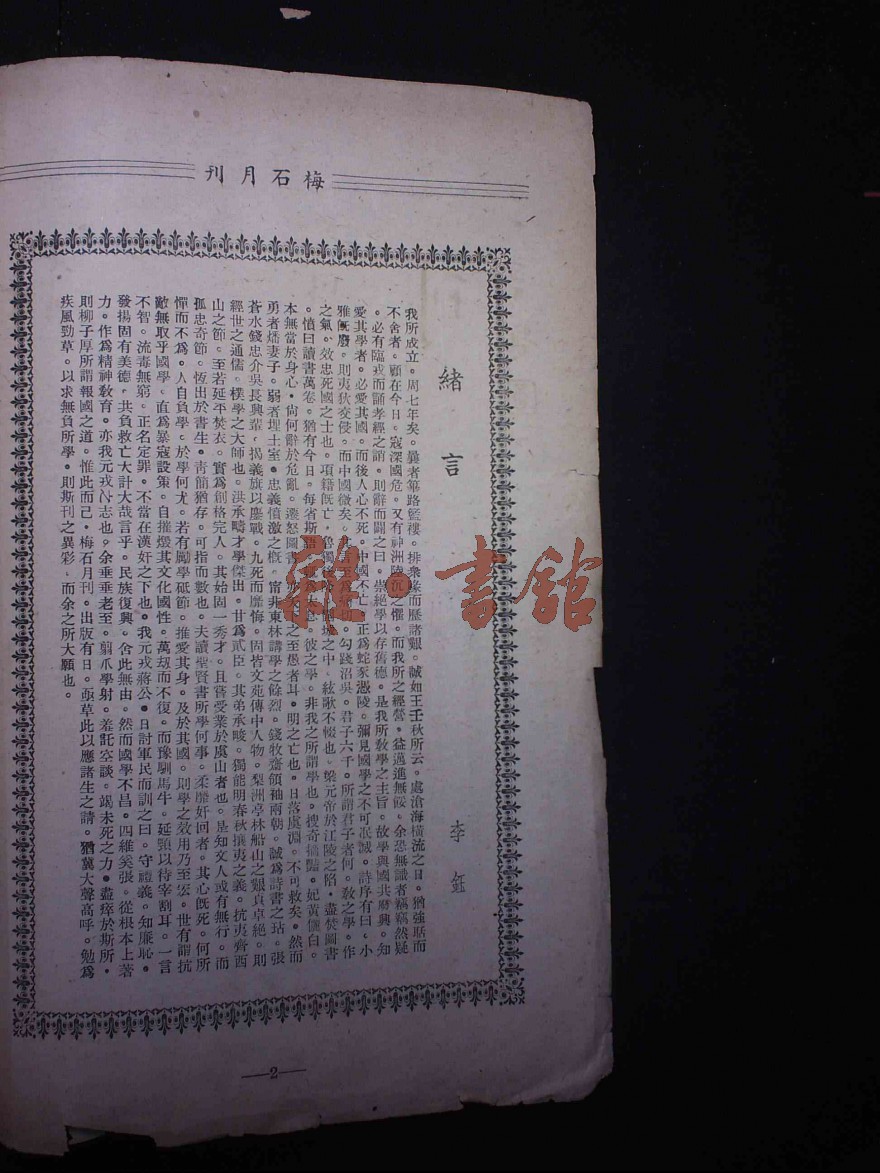 梅石月刊
緒言
李鈺
我所成立。周七年矣。曩者篳路藍縷。排衆難而歷諸艱。誠如王壬秋所云。處滄海橫流之日。猶強聒而
不舍者。顧在今日。寇深國危。又有神洲陸沉之懼。而我所之經營。益邁進無餒。余恐無識者竊竊然疑
。必有臨戎而誦孝經之誚。則辭而闢之曰。崇絕學以存舊德。是我所敎學之主旨。故學與國共廢興。知
愛其學者。必愛其國。而後人心不死。中國不亡。正爲蛇豕憑陵。彌見國學之不可泯誠。詩序有曰。小
雅旣廢。則夷狄交侵。而中國微矣。勾踐沼吳。君子六千。所謂君子者何。敎之學。作
之氣。效忠死國之士也。項籍旣亡。魯獨後城之中。絃歌不輟也。梁元帝於江陵之陷。盡焚圖書
。憤曰讀書萬卷。猶有今日。每省斯語。彼之學。非我之所謂學也。搜奇摘豔。妃黃儷白。
本無當於身心。尙何辭於危亂。遷怒圖書之至愚者耳。明之亡也。日落虞淵。不可救矣。然而
勇者燔妻子。弱者埋土室。忠義憤激之槪。甯非東林講學之餘烈。錢牧齋領袖兩朝。誠爲詩書之玷。張
蒼水錢忠介吳長興輩。揭義旗以鏖戰。九死而靡悔。固皆文苑傳中人物。梨洲亭林船山之艱貞卓絕。則
經世之通儒。樸學之大師也。洪承疇才學傑出。甘爲貳臣。其弟承畯。獨能明春秋攘夷之義。抗夷齊西
山之節。至若延平焚衣。實爲創格完人。其始固一秀才。且嘗受業於虞山者也。是知文人或有無行。而
孤忠奇節。恆出於書生。靑簡猶存。可指而數也。夫讀聖賢書所學何事。柔靡奸回者。其心旣死。何所
憚而不爲。人自負學。於學何尤。若有勵學砥節。推愛其身。及於其國。則學之效用乃至宏。世有謂抗
敵無取乎國學。直爲暴寇設策。自摧燬其文化國性。萬刼而不復。而豫馴馬牛。延頸以待宰割耳。一言
不智。流毒無窮。正名定罪。不當在漢奸之下也。我元戎蔣公。日討軍民而訓之曰。守禮義。知廉恥。
發揚固有美德。共負救亡大計大哉言乎。民族復興。舍此無由。然而國學不昌。四維奚張。從根本上著
力。作爲精神敎育。亦我元戎之志也。余垂垂老至。翦爪學射。羞託空談。竭未死之力。盡瘁於斯所。
則柳子厚所謂報國之道。惟此而已。梅石月刊。出版有日。亟草此以應諸生之請。猶冀大聲高呼。勉爲
疾風勁草。以求無負所學。則斯刊之異彩。而余之所大願也。
—2—
雜書館